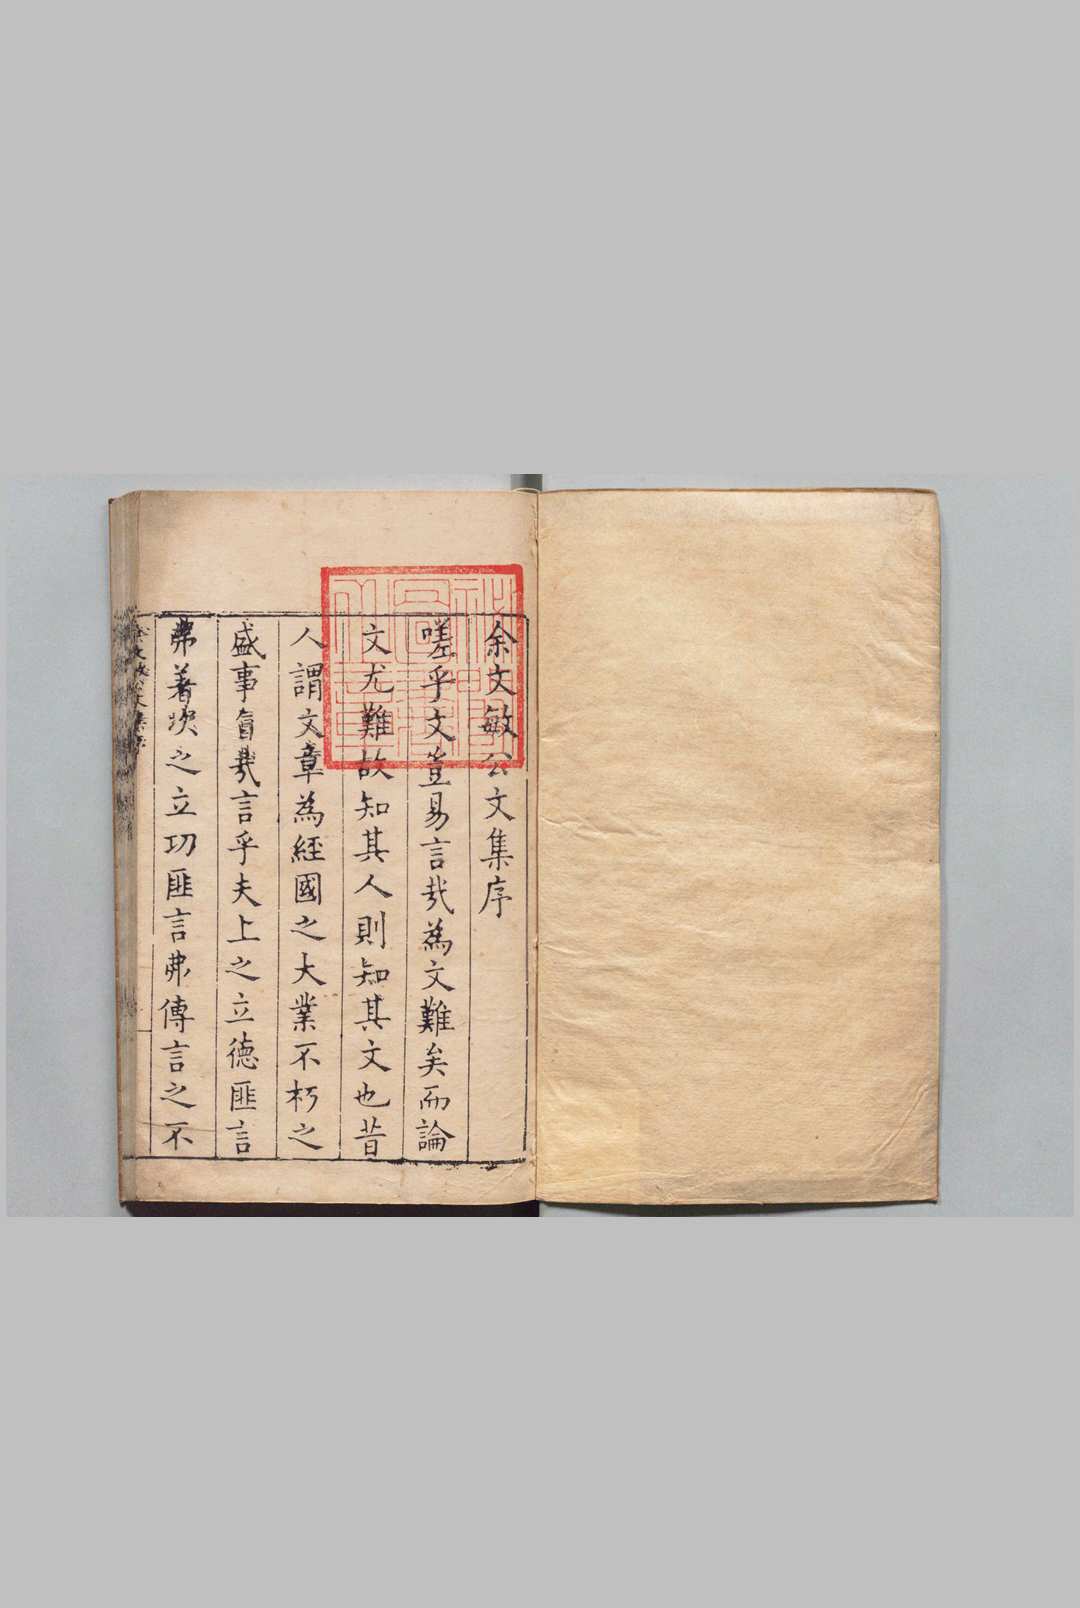 余文敏公文集序
嗟乎文豈易言哉為文難矣而論
文尤難故知其人則知其文也昔
人謂文章為經國之大業不朽之
盛事旨哉言乎夫上之立德匪言
弗著次之立功匪言弗傳言之不
余文敏公文集序
秘閣圖書之章